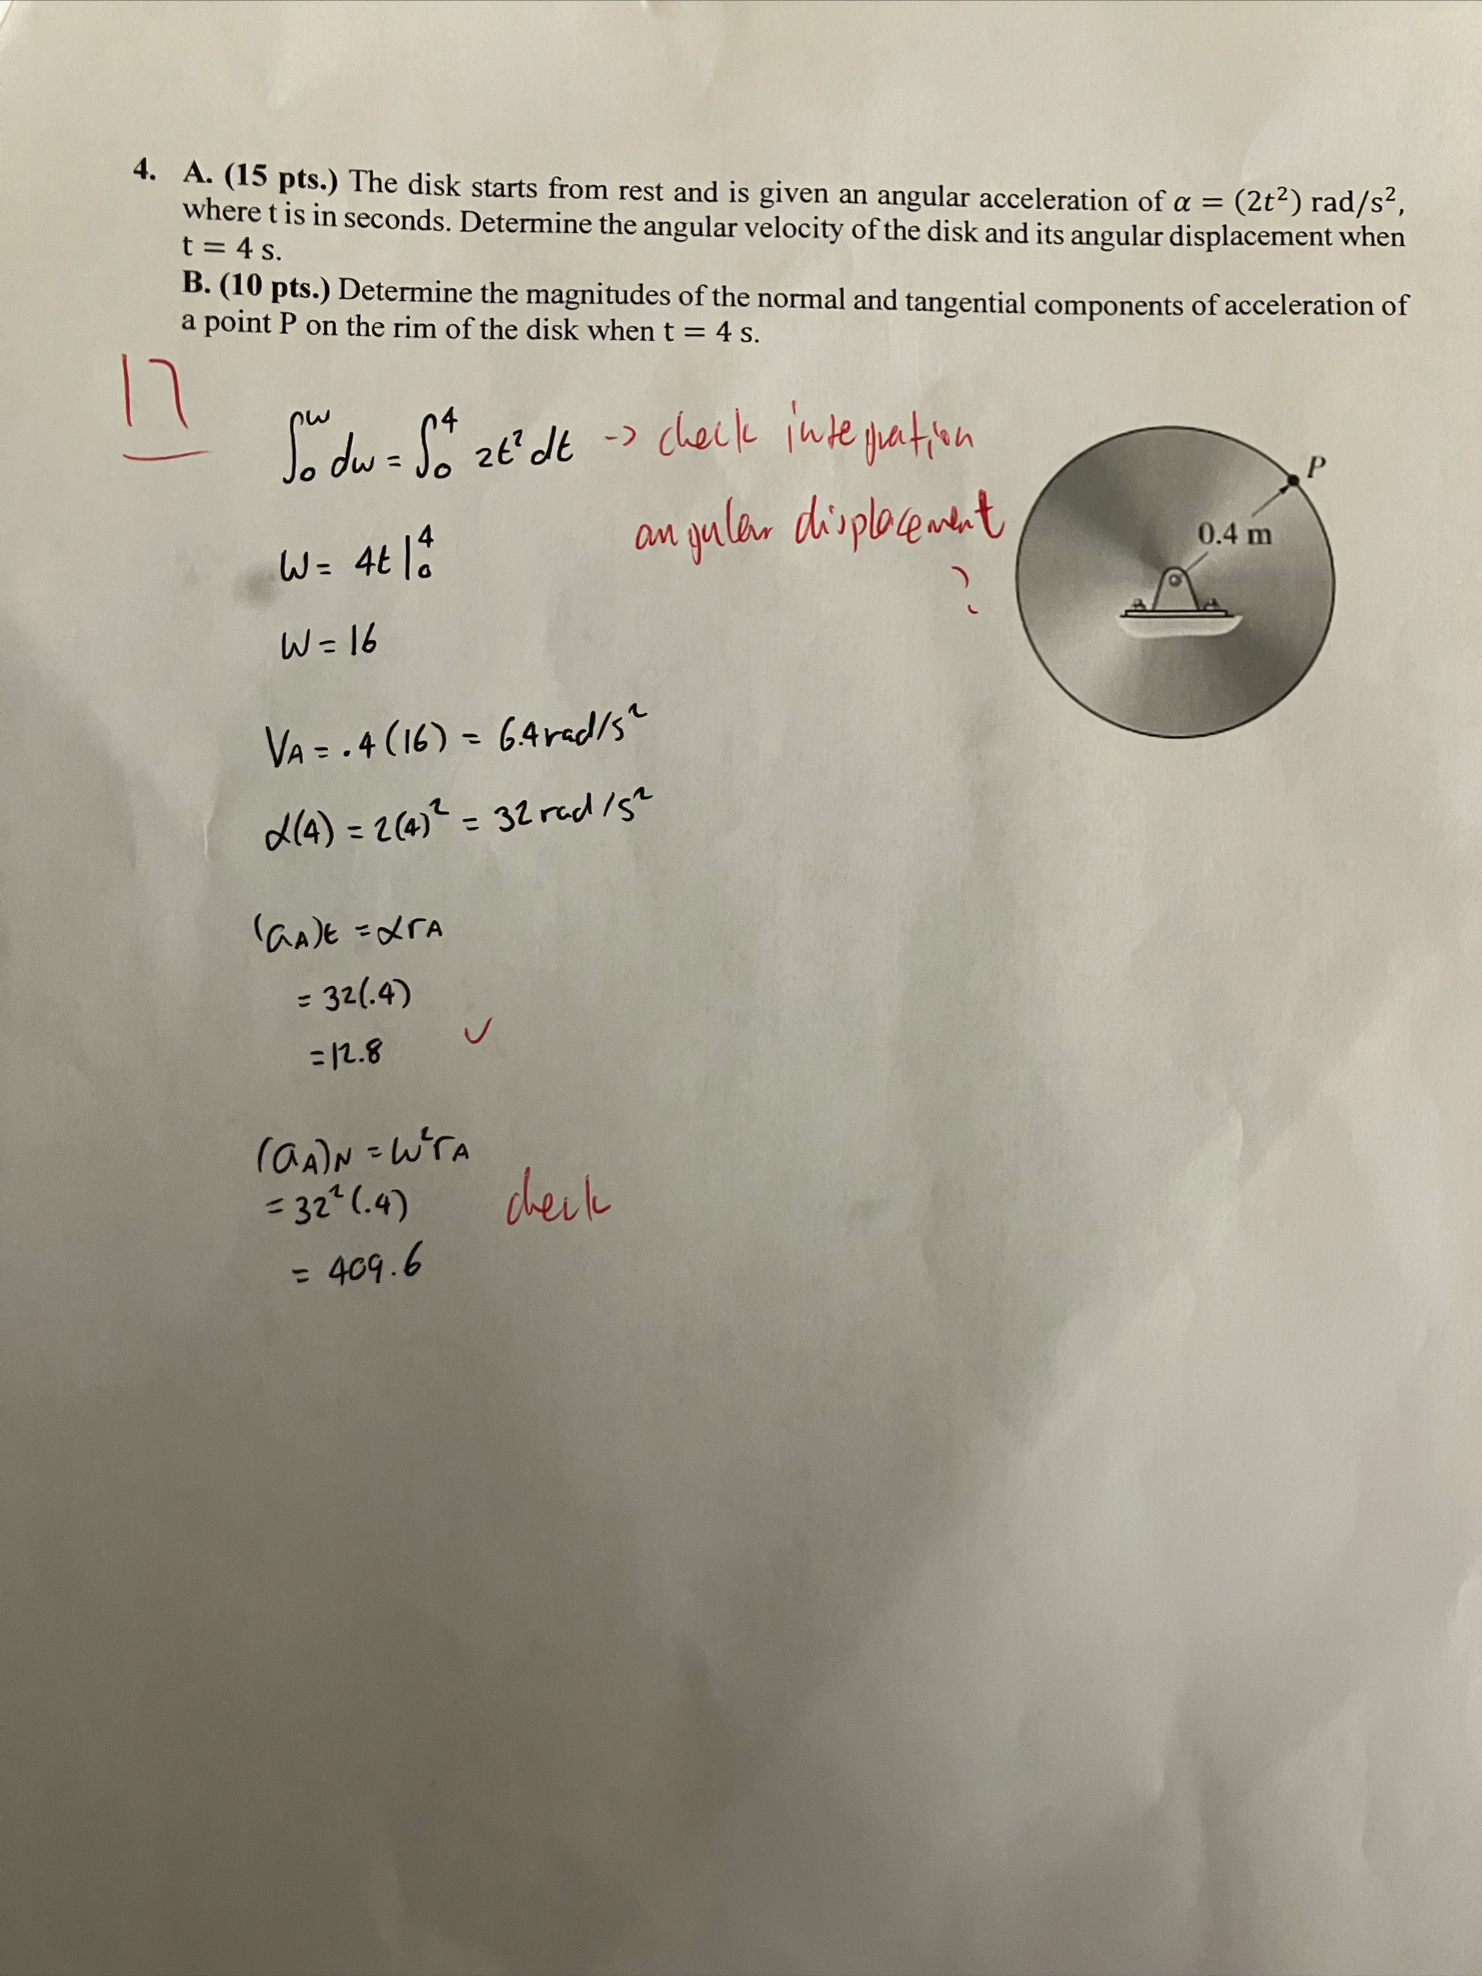 4. A. (15 pts.) The disk starts from rest and is given an angular acceleration of α = (2t²) rad/s²,
where t is in seconds. Determine the angular velocity of the disk and its angular displacement when
t = 4 s.
B. (10 pts.) Determine the magnitudes of the normal and tangential components of acceleration of
a point P on the rim of the disk when t = 4 s.
17
∫₀^w dw = ∫₀⁴ 2t² dt → check integration
angular displacement
?
P
0.4 m
W = 4t |₀⁴
W = 16
VA = .4(16) = 6.4 rad/s²
α(4) = 2(4)² = 32 rad/s²
(aA)t = αrA
= 32(.4)
= 12.8 ✓
(aA)N = w²rA
= 32²(.4) check
= 409.6